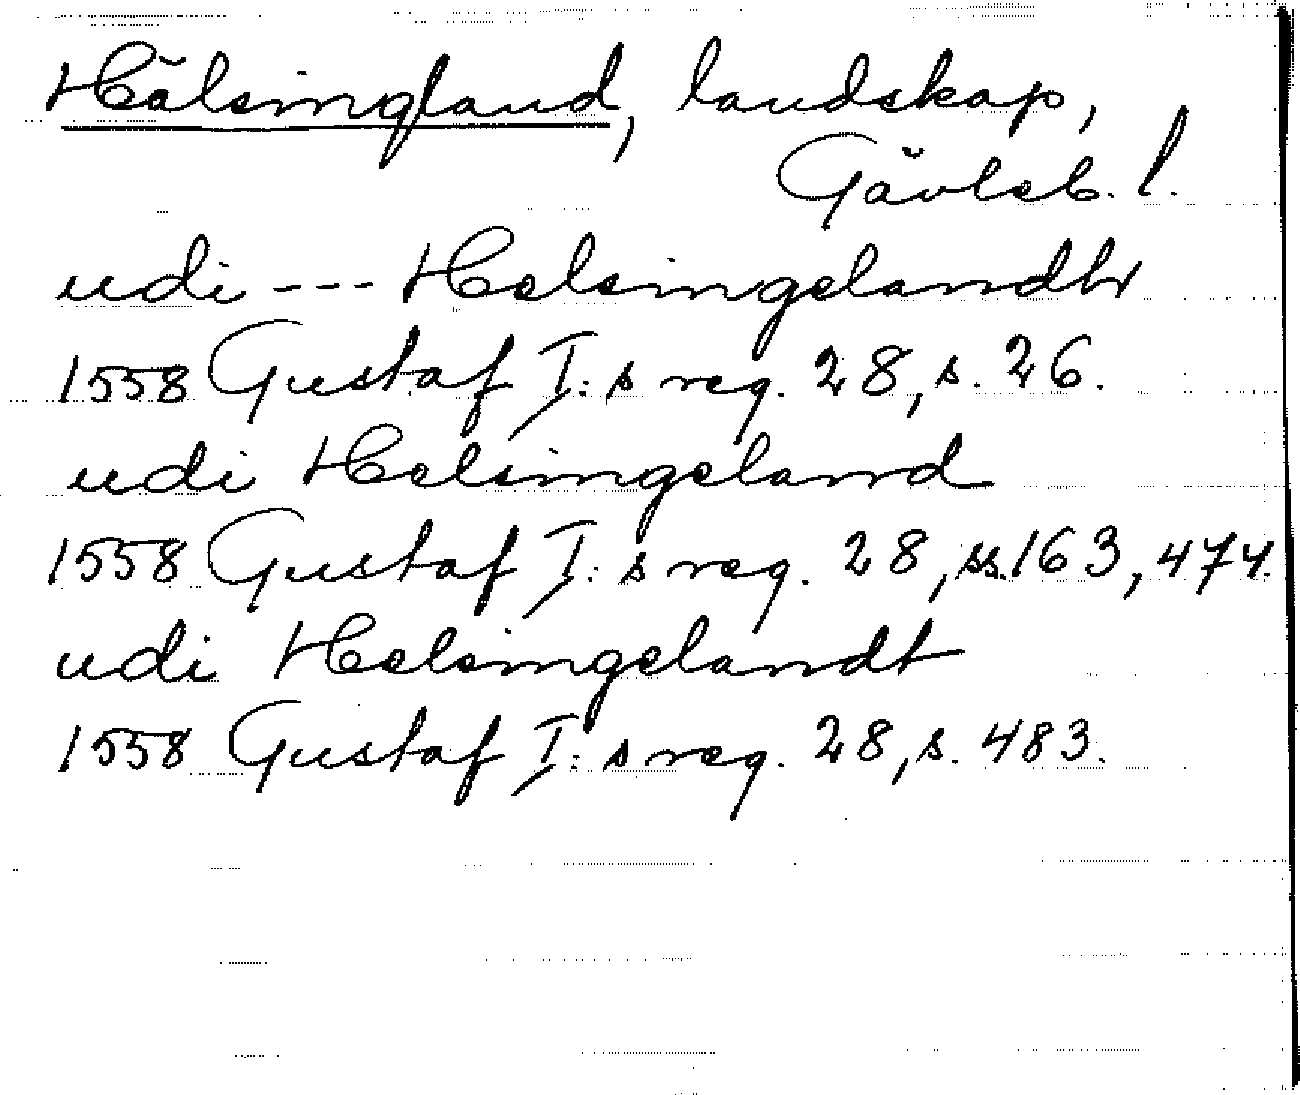 Hälsingland, landskap,
Gävleb. l.
udi --- Helsingelandh
1558 Gustaf I:s reg. 28, s. 26.
udi Helsingeland
1558 Gustaf I:s reg. 28, ss. 163, 474.
udi Helsingelandt
1558 Gustaf I:s reg. 28, s. 483.